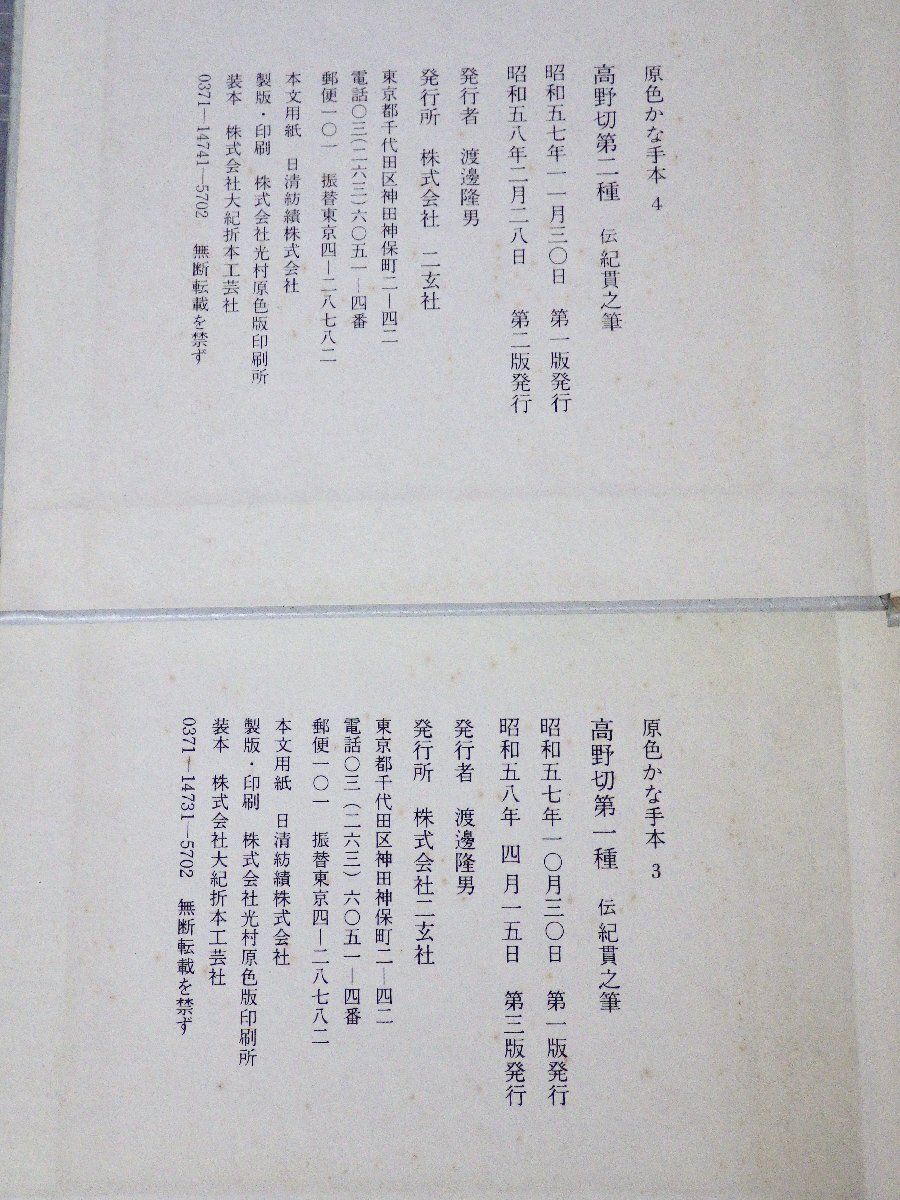 原色かな手本 4
高野切第二種 伝 紀貫之筆
昭和五七年一一月三〇日 第一版発行
昭和五八年二月二八日 第二版発行
発行者 渡邊隆男
発行所 株式会社 二玄社
東京都千代田区神田神保町二—四二
電話〇三(二六三)六〇五一—四番
郵便一〇一 振替東京四—二八七八二
本文用紙 日清紡績株式会社
製版・印刷 株式会社光村原色版印刷所
装本 株式会社大紀折本工芸社
0371—14741—5702 無断転載を禁ず
原色かな手本 3
高野切第一種 伝 紀貫之筆
昭和五七年一〇月三〇日 第一版発行
昭和五八年 四月一五日 第三版発行
発行者 渡邊隆男
発行所 株式会社二玄社
東京都千代田区神田神保町二—四二
電話〇三(二六三)六〇五一—四番
郵便一〇一 振替東京四—二八七八二
本文用紙 日清紡績株式会社
製版・印刷 株式会社光村原色版印刷所
装本 株式会社大紀折本工芸社
0371—14731—5702 無断転載を禁ず